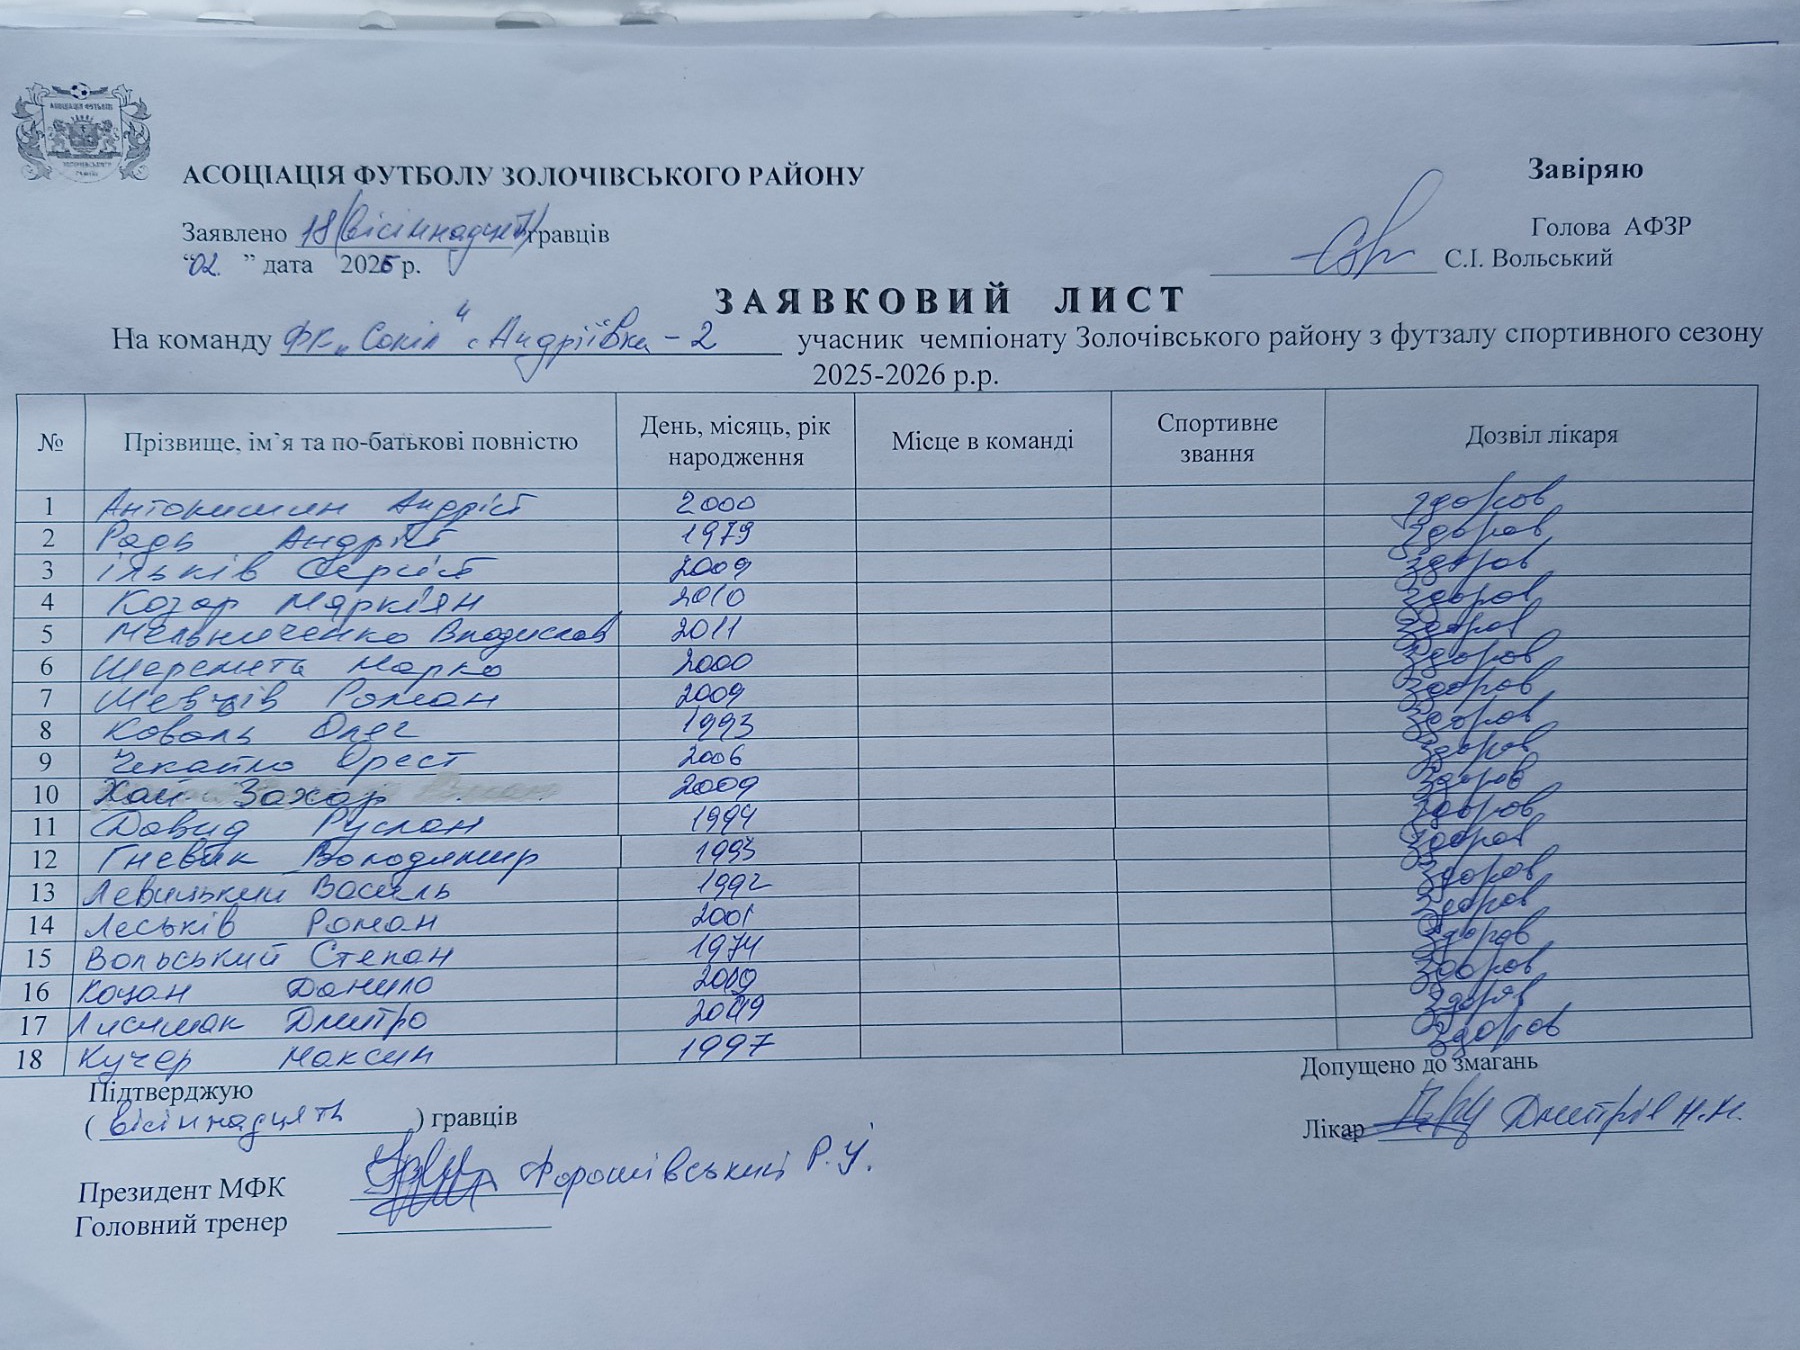 АСОЦІАЦІЯ ФУТБОЛУ ЗОЛОЧІВСЬКОГО РАЙОНУ
Завіряю
Заявлено 18 (вісімнадцять) гравців
Голова АФЗР
"02." дата 2025 р.
С.І. Вольський
ЗАЯВКОВИЙ ЛИСТ
На команду ФК „Сокіл" с. Андріївка - 2 учасник чемпіонату Золочівського району з футзалу спортивного сезону
2025-2026 р.р.
№ Прізвище, ім`я та по-батькові повністю День, місяць, рік народження Місце в команді Спортивне звання Дозвіл лікаря
1 Антонишин Андрій 2000 здоров
2 Радь Андрій 1979 здоров
3 Ільків Сергій 2009 здоров
4 Козар Маркіян 2010 здоров
5 Мельниченко Владислав 2011 здоров
6 Шеремета Марко 2000 здоров
7 Шевців Роман 2009 здоров
8 Коваль Олег 1993 здоров
9 Чекайло Орест 2006 здоров
10 Хай Захар 2009 здоров
11 Давид Руслан 1994 здоров
12 Гневик Володимир 1993 здоров
13 Левицький Василь 1992 здоров
14 Леськів Роман 2001 здоров
15 Вольський Степан 1974 здоров
16 Коцан Данило здоров
17 Лисишак Дмитро здоров
18 Кучер Максим 1997 здоров
Підтверджую
Допущено до змагань
(вісімнадцять) гравців
Лікар Дмитрів Н.М.
Президент МФК Р.Й.
Головний тренер